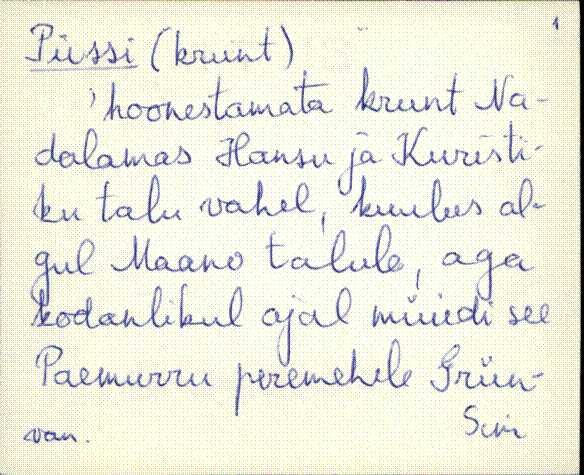 1
Püssi (krunt)
'hoonestamata krunt Na-
dalamas Hansu ja Kuristi-
ku talu vahel, kuulus al-
gul Maano talule, aga
kodanlikul ajal müüdi see
Paemurru peremehele Grün-
van.